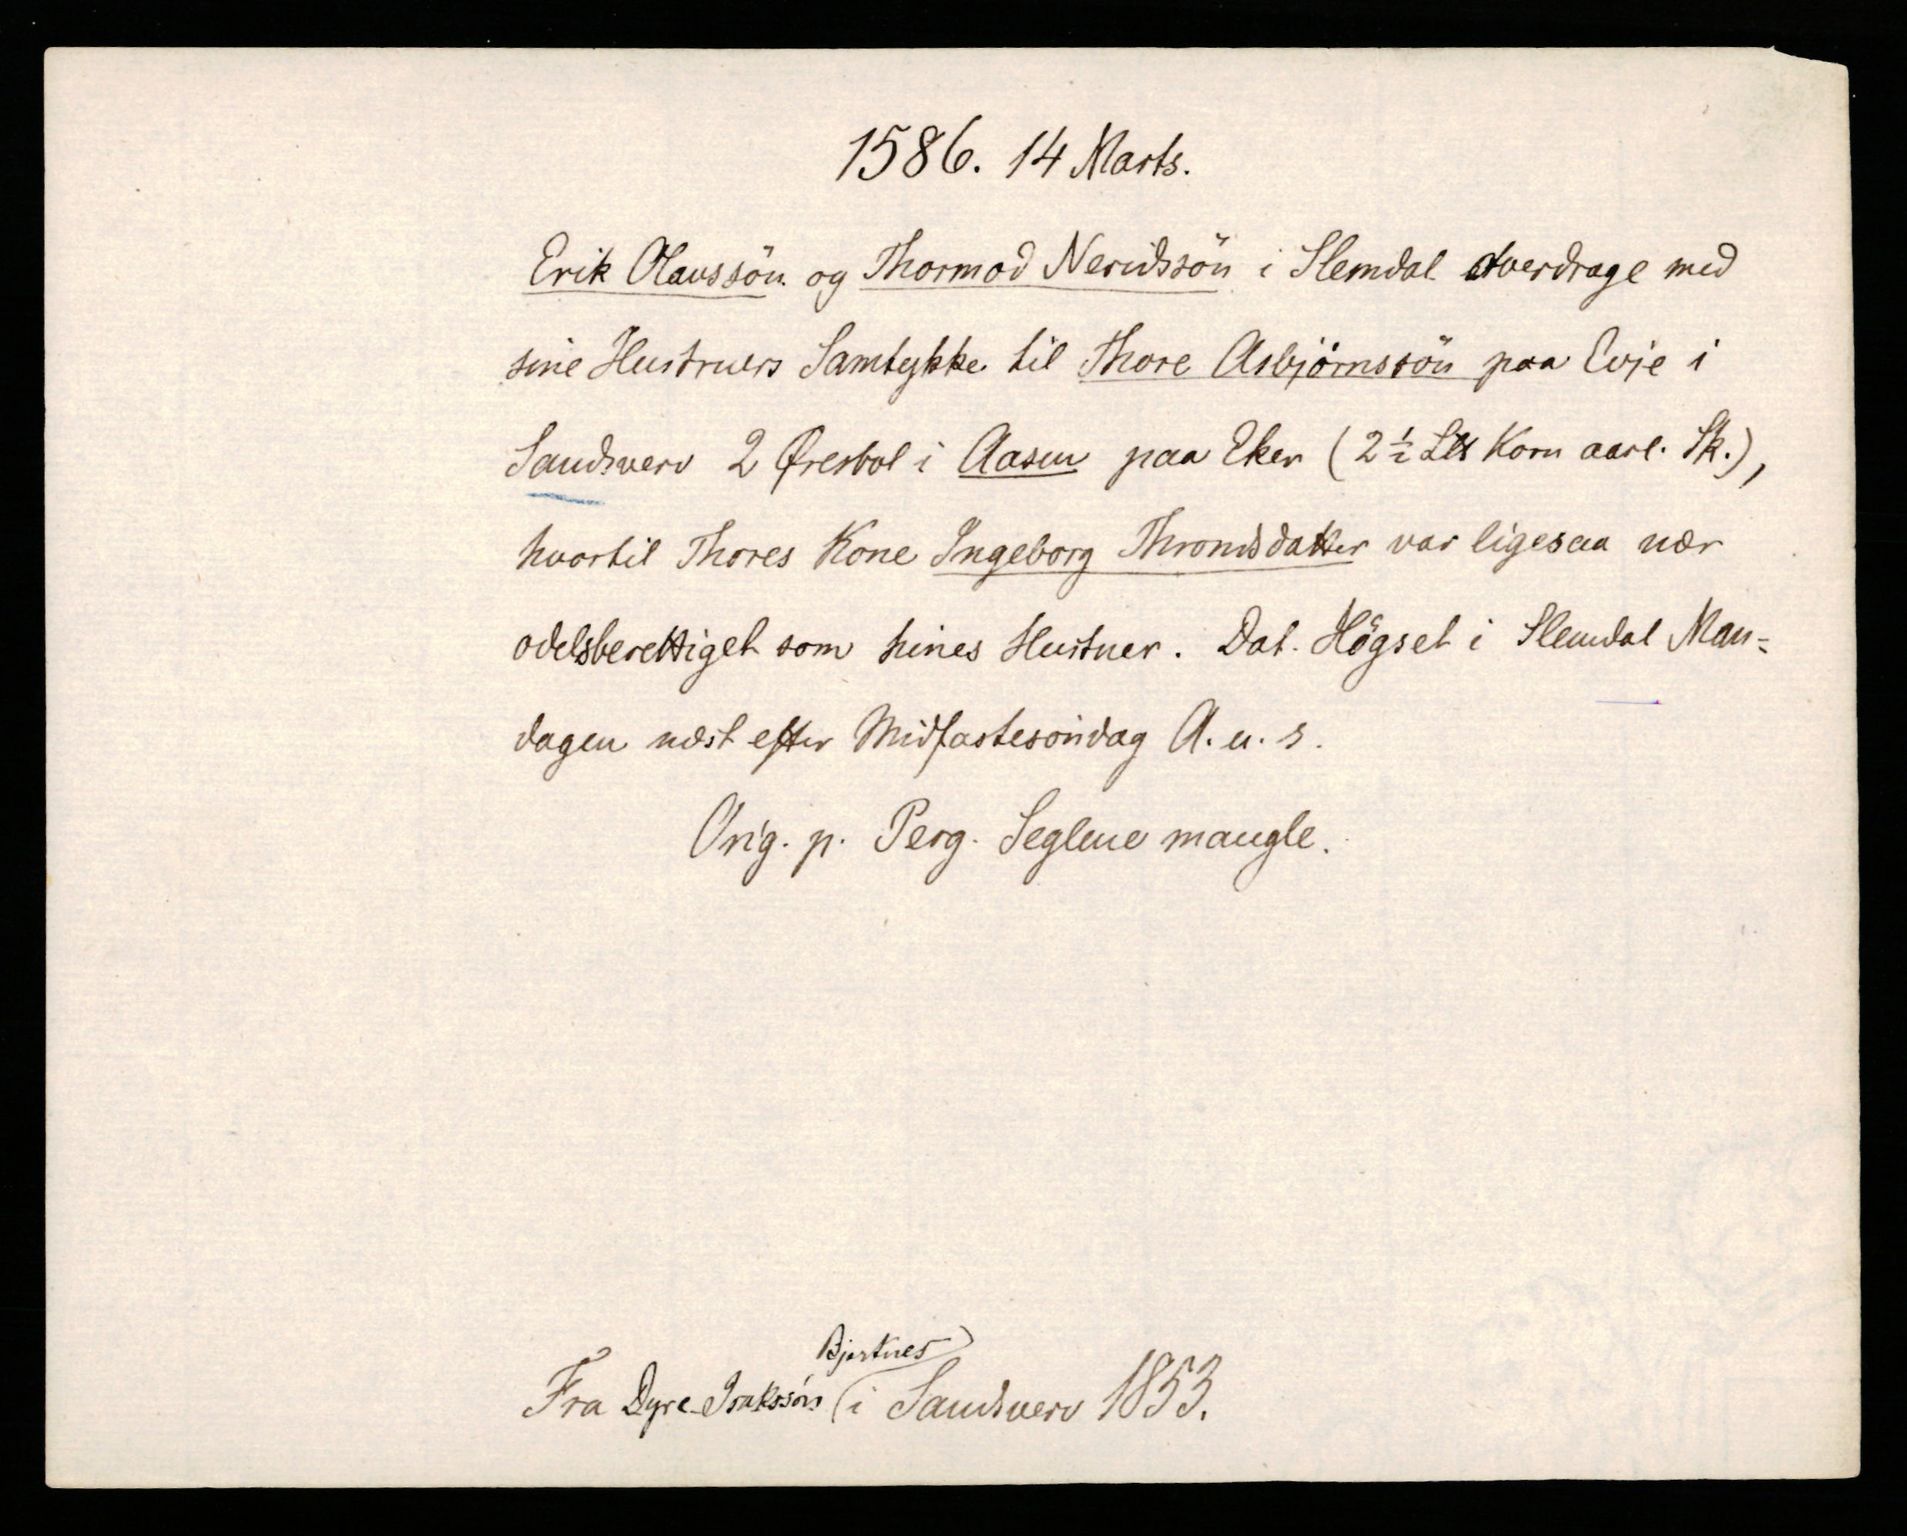 1586. 14 Marts.
Erik Olavssön og Thormod Neridssön i Slemdal overdrage med
sine Hustruers Samtykke til Thore Asbjörnssön paa Evje i
Sandsverv 2 Øresbol i Aasen paa Eker (2½ Lts Korn aarl. Sk.),
hvortil Thores Kone Ingeborg Throndsdatter var ligesaa nær
odelsberettiget som hines Hustruer. Dat. Högset i Slemdal Man=
dagen næst efter Midfastesöndag A. u. s.
Orig. p. Perg. Seglene mangle.
Bjerknes
Fra Dyre Isakssön (i Sandsverv 1853.